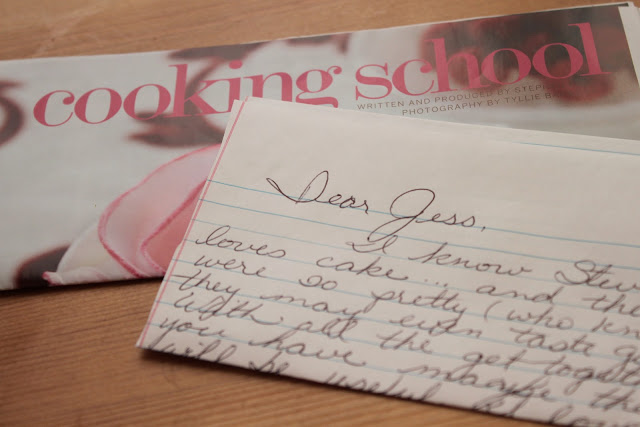 cooking school
WRITTEN AND PRODUCED BY STEP
PHOTOGRAPHY BY TYLLIE B
Dear Jess,
I know Stev
loves cake... and the
were so pretty (who kn
they may even taste g
with all the get togeth
you have maybe th
will be useful at